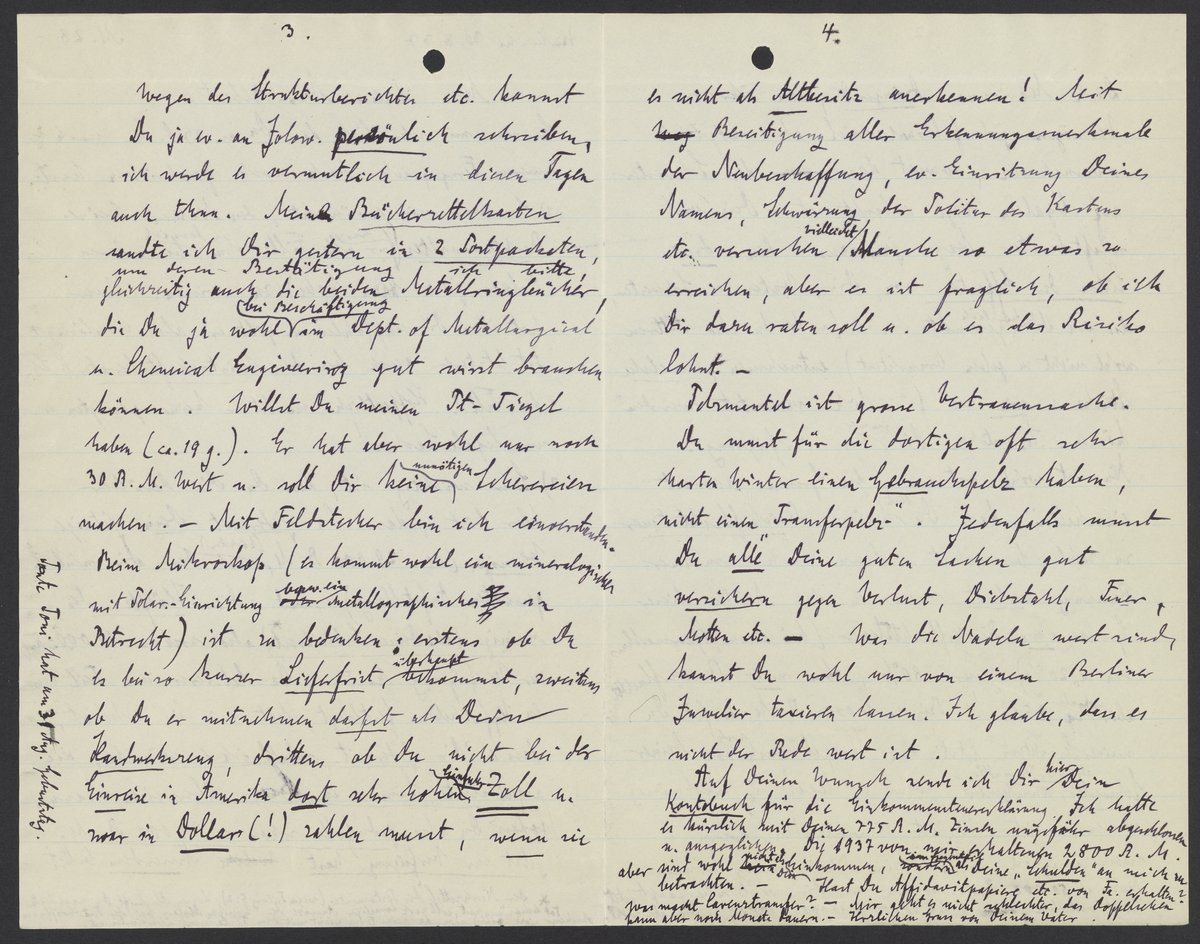 3.
Wegen des Strukturberichtes etc. kannst
Du ja ev. an Jolow. persönlich schreiben,
ich werde es vermutlich in diesen Tagen
auch thun. Meine Bücherzettelkasten
sandte ich Dir gestern in 2 Postpacketen,
um deren Bestätigung ich bitte,
gleichzeitig auch die beiden Metallringbücher,
die Du ja wohl (bei Beschäftigung im Dept. of Metallurgical
u. Chemical Engineering gut wirst brauchen
können. Willst Du meinen Pt-Tiegel
haben (ca. 19 g.). Er hat aber wohl nur noch
30 R.M. Wert u. soll Dir keine unnötigen Scherereien
machen. – Mit Feldstecher bin ich einverstanden.
Beim Mikroskop (es kommt wohl ein mineralogisches
mit Polar.-Einrichtung oder bezw. ein metallographisches in
Betracht) ist zu bedenken: erstens ob Du
es bei so kurzer Lieferfrist überhaupt bekommst, zweitens
ob Du es mitnehmen darfst als Dein
Handwerkszeug, drittens ob Du nicht bei der
Einreise in Amerika dort sehr hohen Einfuhr Zoll u.
zwar in Dollars (!) zahlen musst, wenn sie
Tante Toni hat am 31 Aug. Geburtstag.
4.
es nicht als Altbesitz anerkennen! Mit
Weg Beseitigung aller Erkennungsmerkmale
der Neubeschaffung, ev. Einritzung Deines
Namens, Schwärzung der Politur des Kastens
etc. versuchen vielleicht Manche so etwas zu
erreichen, aber es ist fraglich, ob ich
Dir dazu raten soll u. ob es das Risiko
lohnt. –
Pelzmantel ist grosse Vertrauenssache.
Du musst für die dortigen oft sehr
harten Winter einen Gebrauchspelz haben,
nicht einen "Transferpelz". Jedenfalls musst
Du alle Deine guten Sachen gut
versichern gegen Verlust, Diebstahl, Feuer,
Motten etc. – Was die Nadeln wert sind,
kannst Du wohl nur von einem Berliner
Juwelier taxieren lassen. Ich glaube, dass es
nicht der Rede wert ist.
Auf Deinen Wunsch sende ich Dir hier Dein
Kontobuch für die Einkommensteuererklärung. Ich hatte
es kürzlich mit Deinen 775 R.M. Zinsen ungefähr abgeschlossen
u. ausgeglichen. Die 1937 von mir erhaltenen 2800 R.M.
aber sind wohl nicht einkommen, sondern als Deine "Schulden" an mich zu
betrachten. – Hast Du Affidavitpapiere etc. von Fa. erhalten?
Was macht Lavenztransfer? – Mir geht es nicht schlechter, das Doppeltsehen
kann aber noch Monate dauern. – Herzlichen Gruss von Deinem Vater.